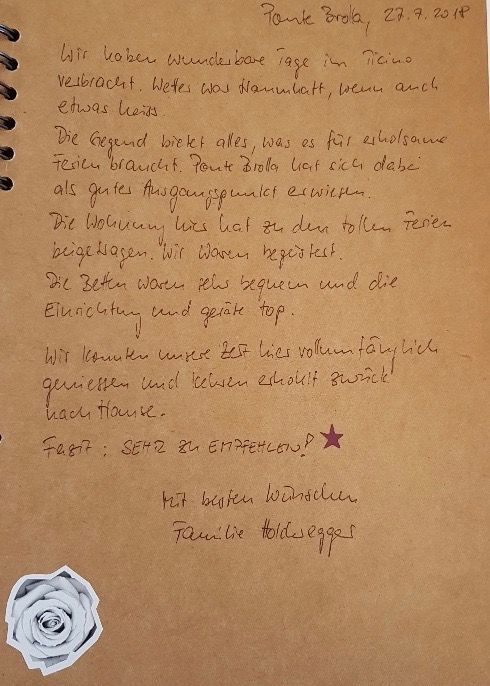 Ponte Brolla, 27.7.2018
Wir haben wunderbare Tage im Ticino
verbracht. Wetter war traumhaft, wenn auch
etwas heiss.
Die Gegend bietet alles, was es für erholsame
Ferien braucht. Ponte Brolla hat sich dabei
als guter Ausgangspunkt erwiesen.
Die Wohnung hier hat zu den tollen Ferien
beigetragen. Wir waren begeistert.
Die Betten waren sehr bequem und die
Einrichtung und Geräte top.
Wir konnten unsere Zeit hier vollumfänglich
geniessen und kehren erholt zurück
nach Hause.
Fazit: SEHR ZU EMPFEHLEN!
Mit besten Wünschen
Familie